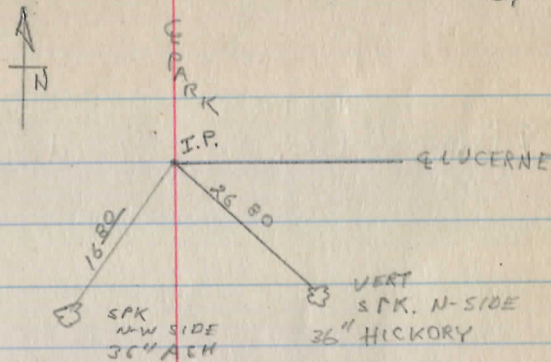 N
℄ PARK
I.P.
℄ LUCERNE
16 80
26 80
SPK
N-W SIDE
36" ASH
VERT
SPK. N-SIDE
36" HICKORY